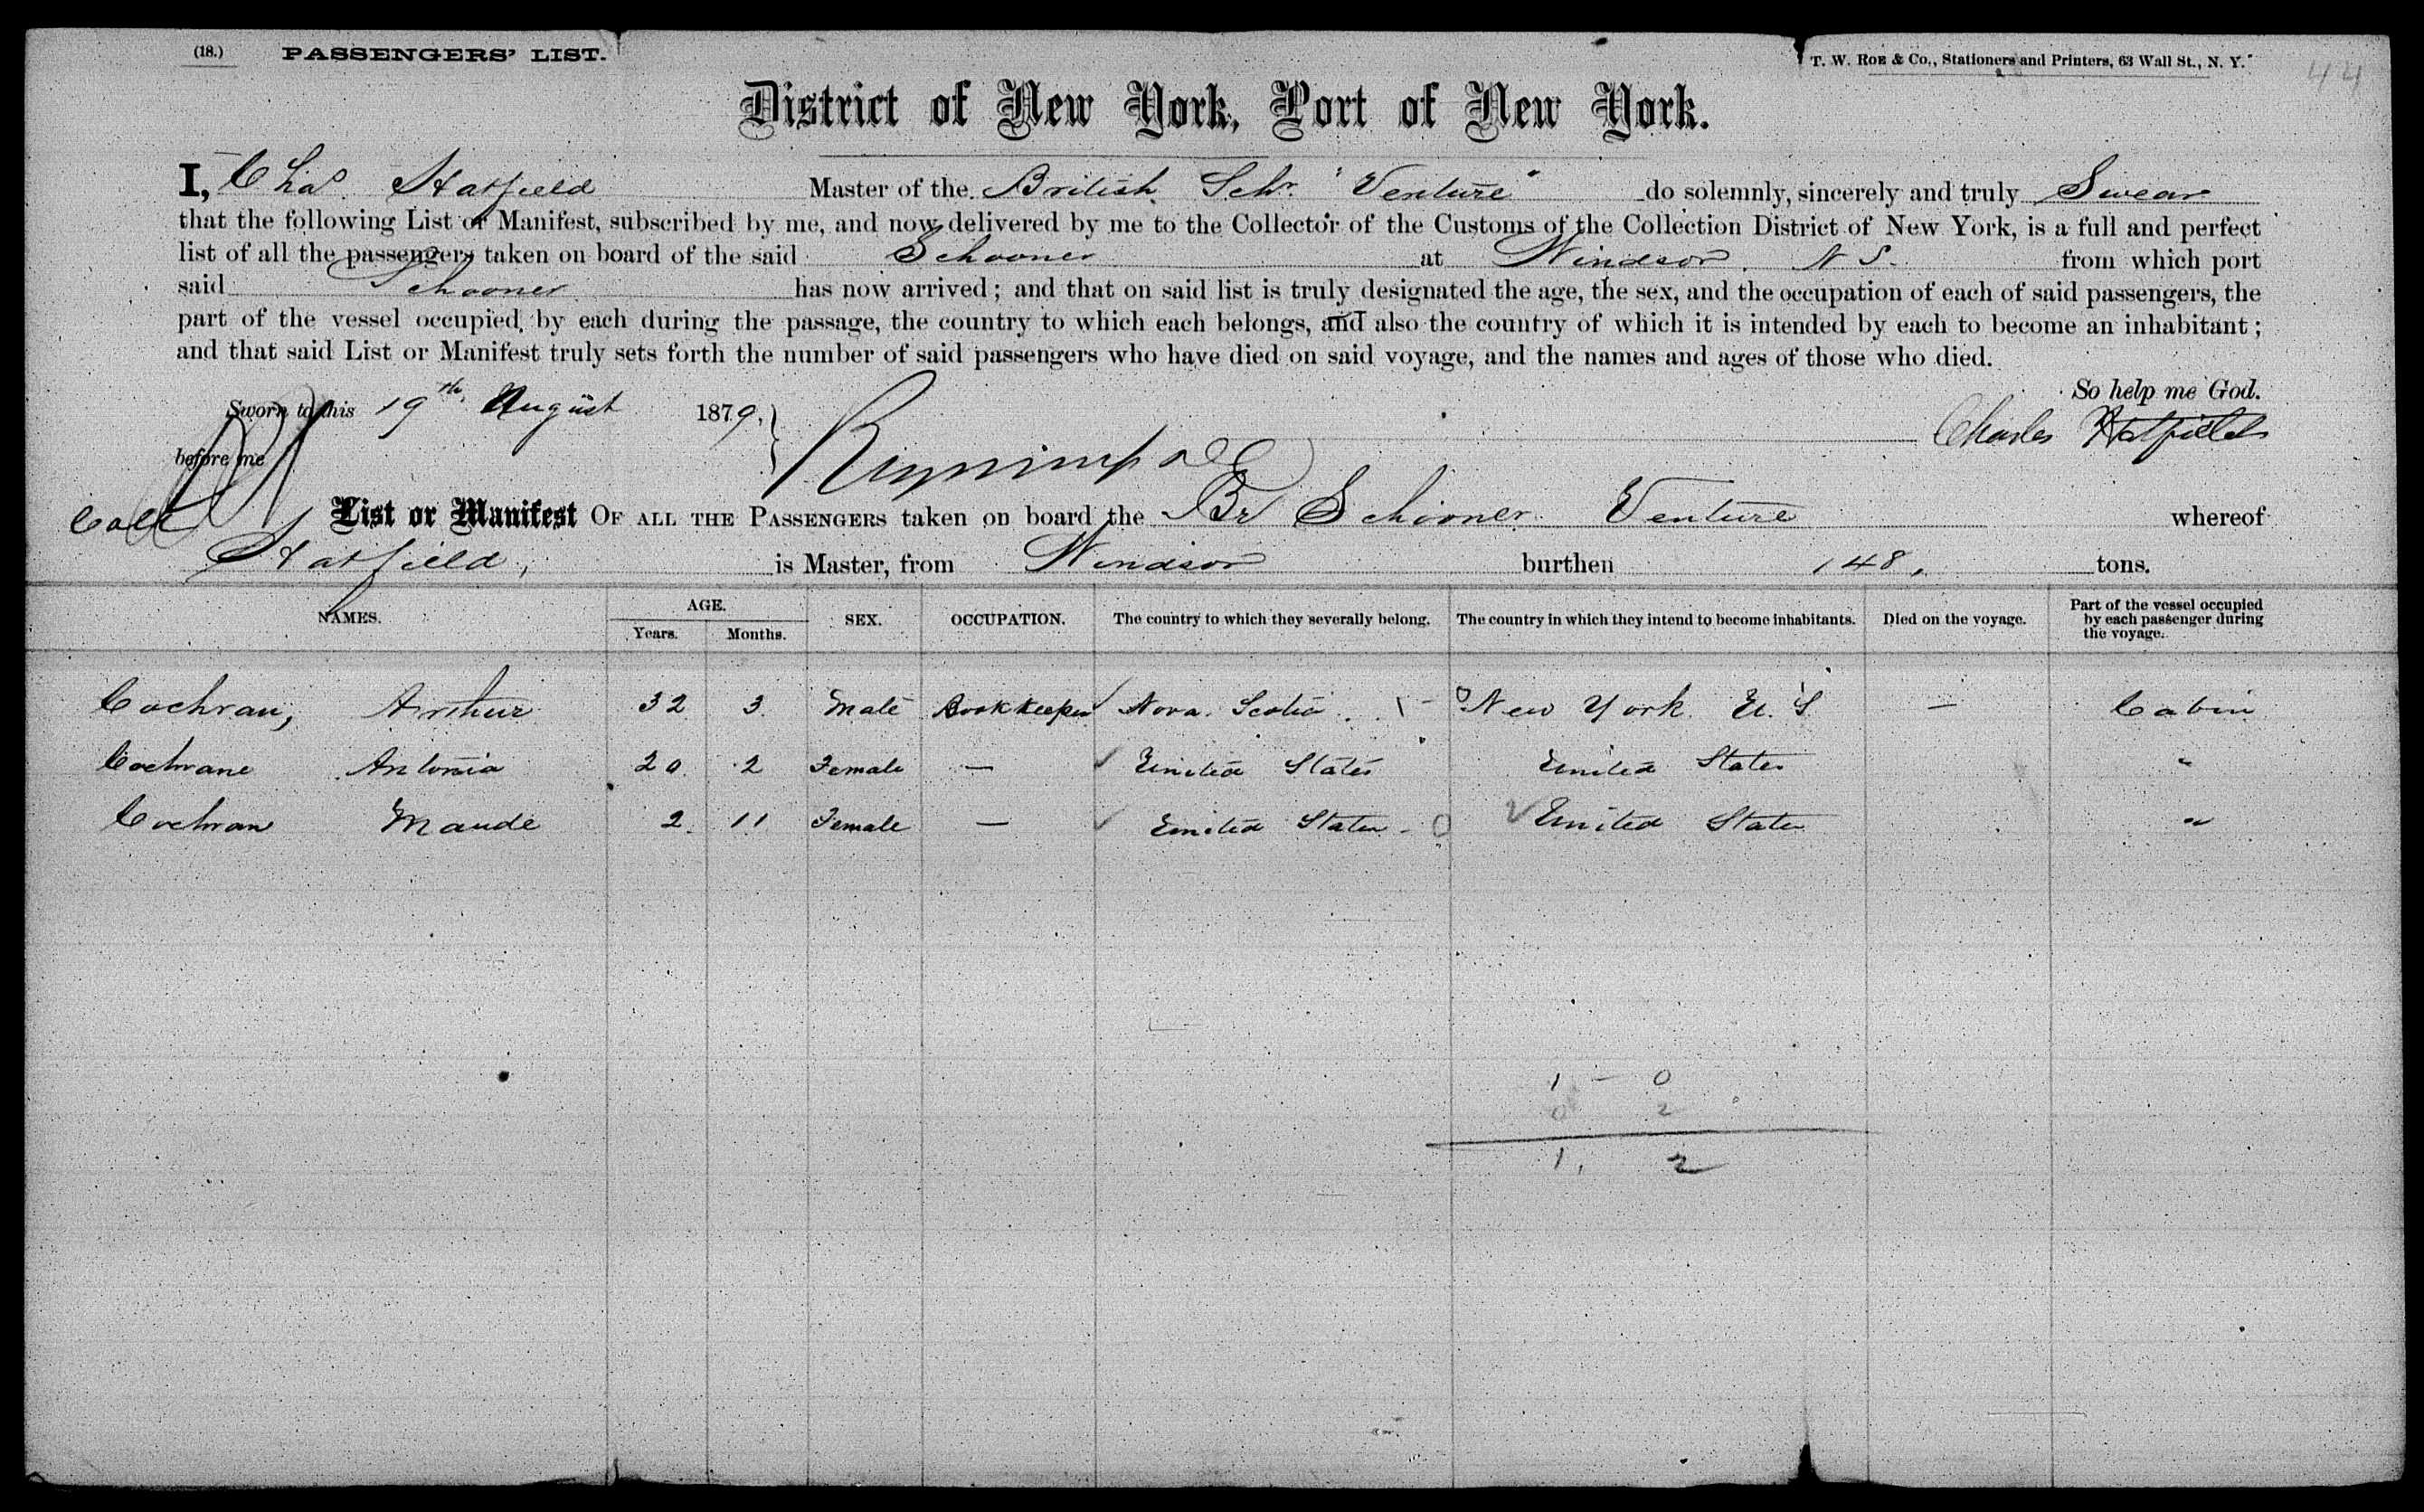 (18.) PASSENGERS' LIST. T. W. Roe & Co., Stationers and Printers, 63 Wall St., N. Y. 44
District of New York, Port of New York.
I, Chas Hatfield Master of the British Schr "Venture" do solemnly, sincerely and truly Swear
that the following List or Manifest, subscribed by me, and now delivered by me to the Collector of the Customs of the Collection District of New York, is a full and perfect
list of all the passengers taken on board of the said Schooner at Windsor. N S. from which port
said Schooner has now arrived; and that on said list is truly designated the age, the sex, and the occupation of each of said passengers, the
part of the vessel occupied by each during the passage, the country to which each belongs, and also the country of which it is intended by each to become an inhabitant;
and that said List or Manifest truly sets forth the number of said passengers who have died on said voyage, and the names and ages of those who died.
So help me God.
Sworn to this 19th August 1879,
Charles Hatfield
before me
List or Manifest OF ALL THE PASSENGERS taken on board the Br Schooner Venture whereof
Hatfield, is Master, from Windsor burthen 148, tons.
NAMES. AGE. Years. Months. SEX. OCCUPATION. The country to which they severally belong. The country in which they intend to become inhabitants. Died on the voyage. Part of the vessel occupied by each passenger during the voyage.
Cochran, Arthur 32 3. Male Bookkeeper Nova. Scotia. New York. U. S. — Cabin
Cochrane Antonia 20. 2 Female — United States United States "
Cochran Maude 2. 11 Female — United States - 0 United States "
1 - 0
0 2
1, 2